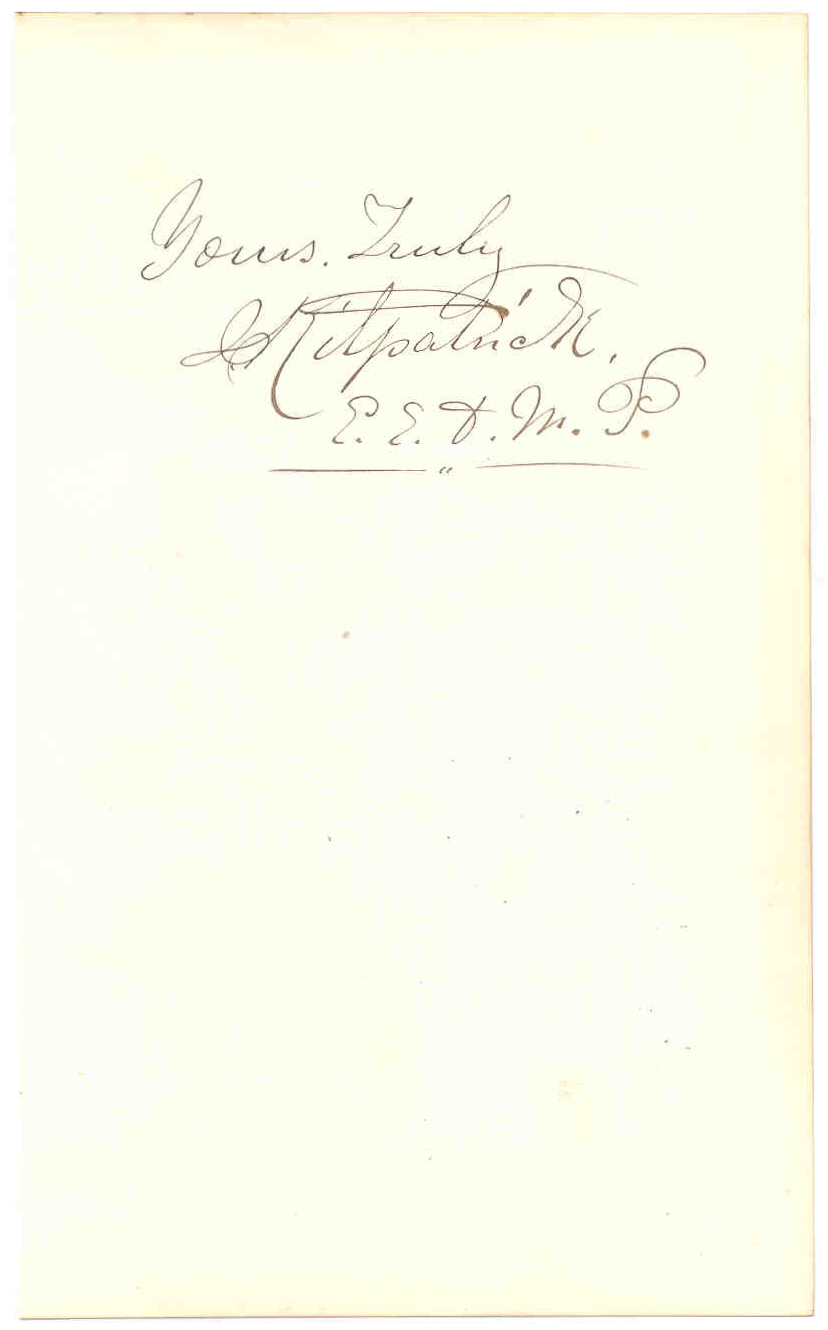 Yours. Truly
J Kilpatrick,
E. E. D. M. P.
"